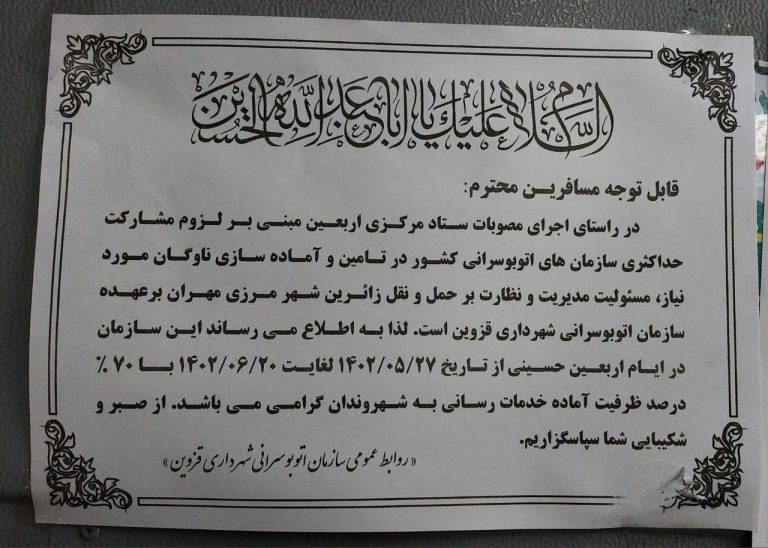 السلام علیک یا اباعبدالله الحسین
قابل توجه مسافرین محترم:
در راستای اجرای مصوبات ستاد مرکزی اربعین مبنی بر لزوم مشارکت
حداکثری سازمان های اتوبوسرانی کشور در تامین و آماده سازی ناوگان مورد
نیاز، مسئولیت مدیریت و نظارت بر حمل و نقل زائرین شهر مرزی مهران برعهده
سازمان اتوبوسرانی شهرداری قزوین است. لذا به اطلاع می رساند این سازمان
در ایام اربعین حسینی از تاریخ ۱۴۰۲/۰۵/۲۷ لغایت ۱۴۰۲/۰۶/۲۰ با ۷۰ %
درصد ظرفیت آماده خدمات رسانی به شهروندان گرامی می باشد. از صبر و
شکیبایی شما سپاسگزاریم.
«روابط عمومی سازمان اتوبوسرانی شهرداری قزوین»